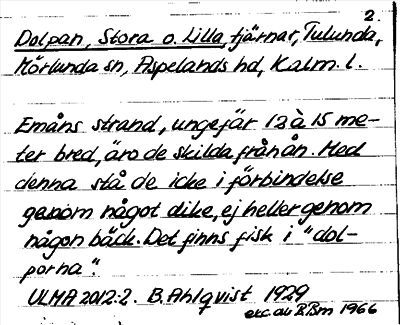 2.
Dolpan, Stora o. Lilla, tjärnar, Tulunda,
Mörlunda sn, Aspelands hd, Kalm. l.
Emåns strand, ungefär 12 à 15 me-
ter bred, äro de skilda från ån. Med
denna stå de icke i förbindelse
genom något dike, ej heller genom
någon bäck. Det finns fisk i "dol-
porna".
ULMA 2012:2. B. Ahlqvist 1929
exc. av BBm 1966